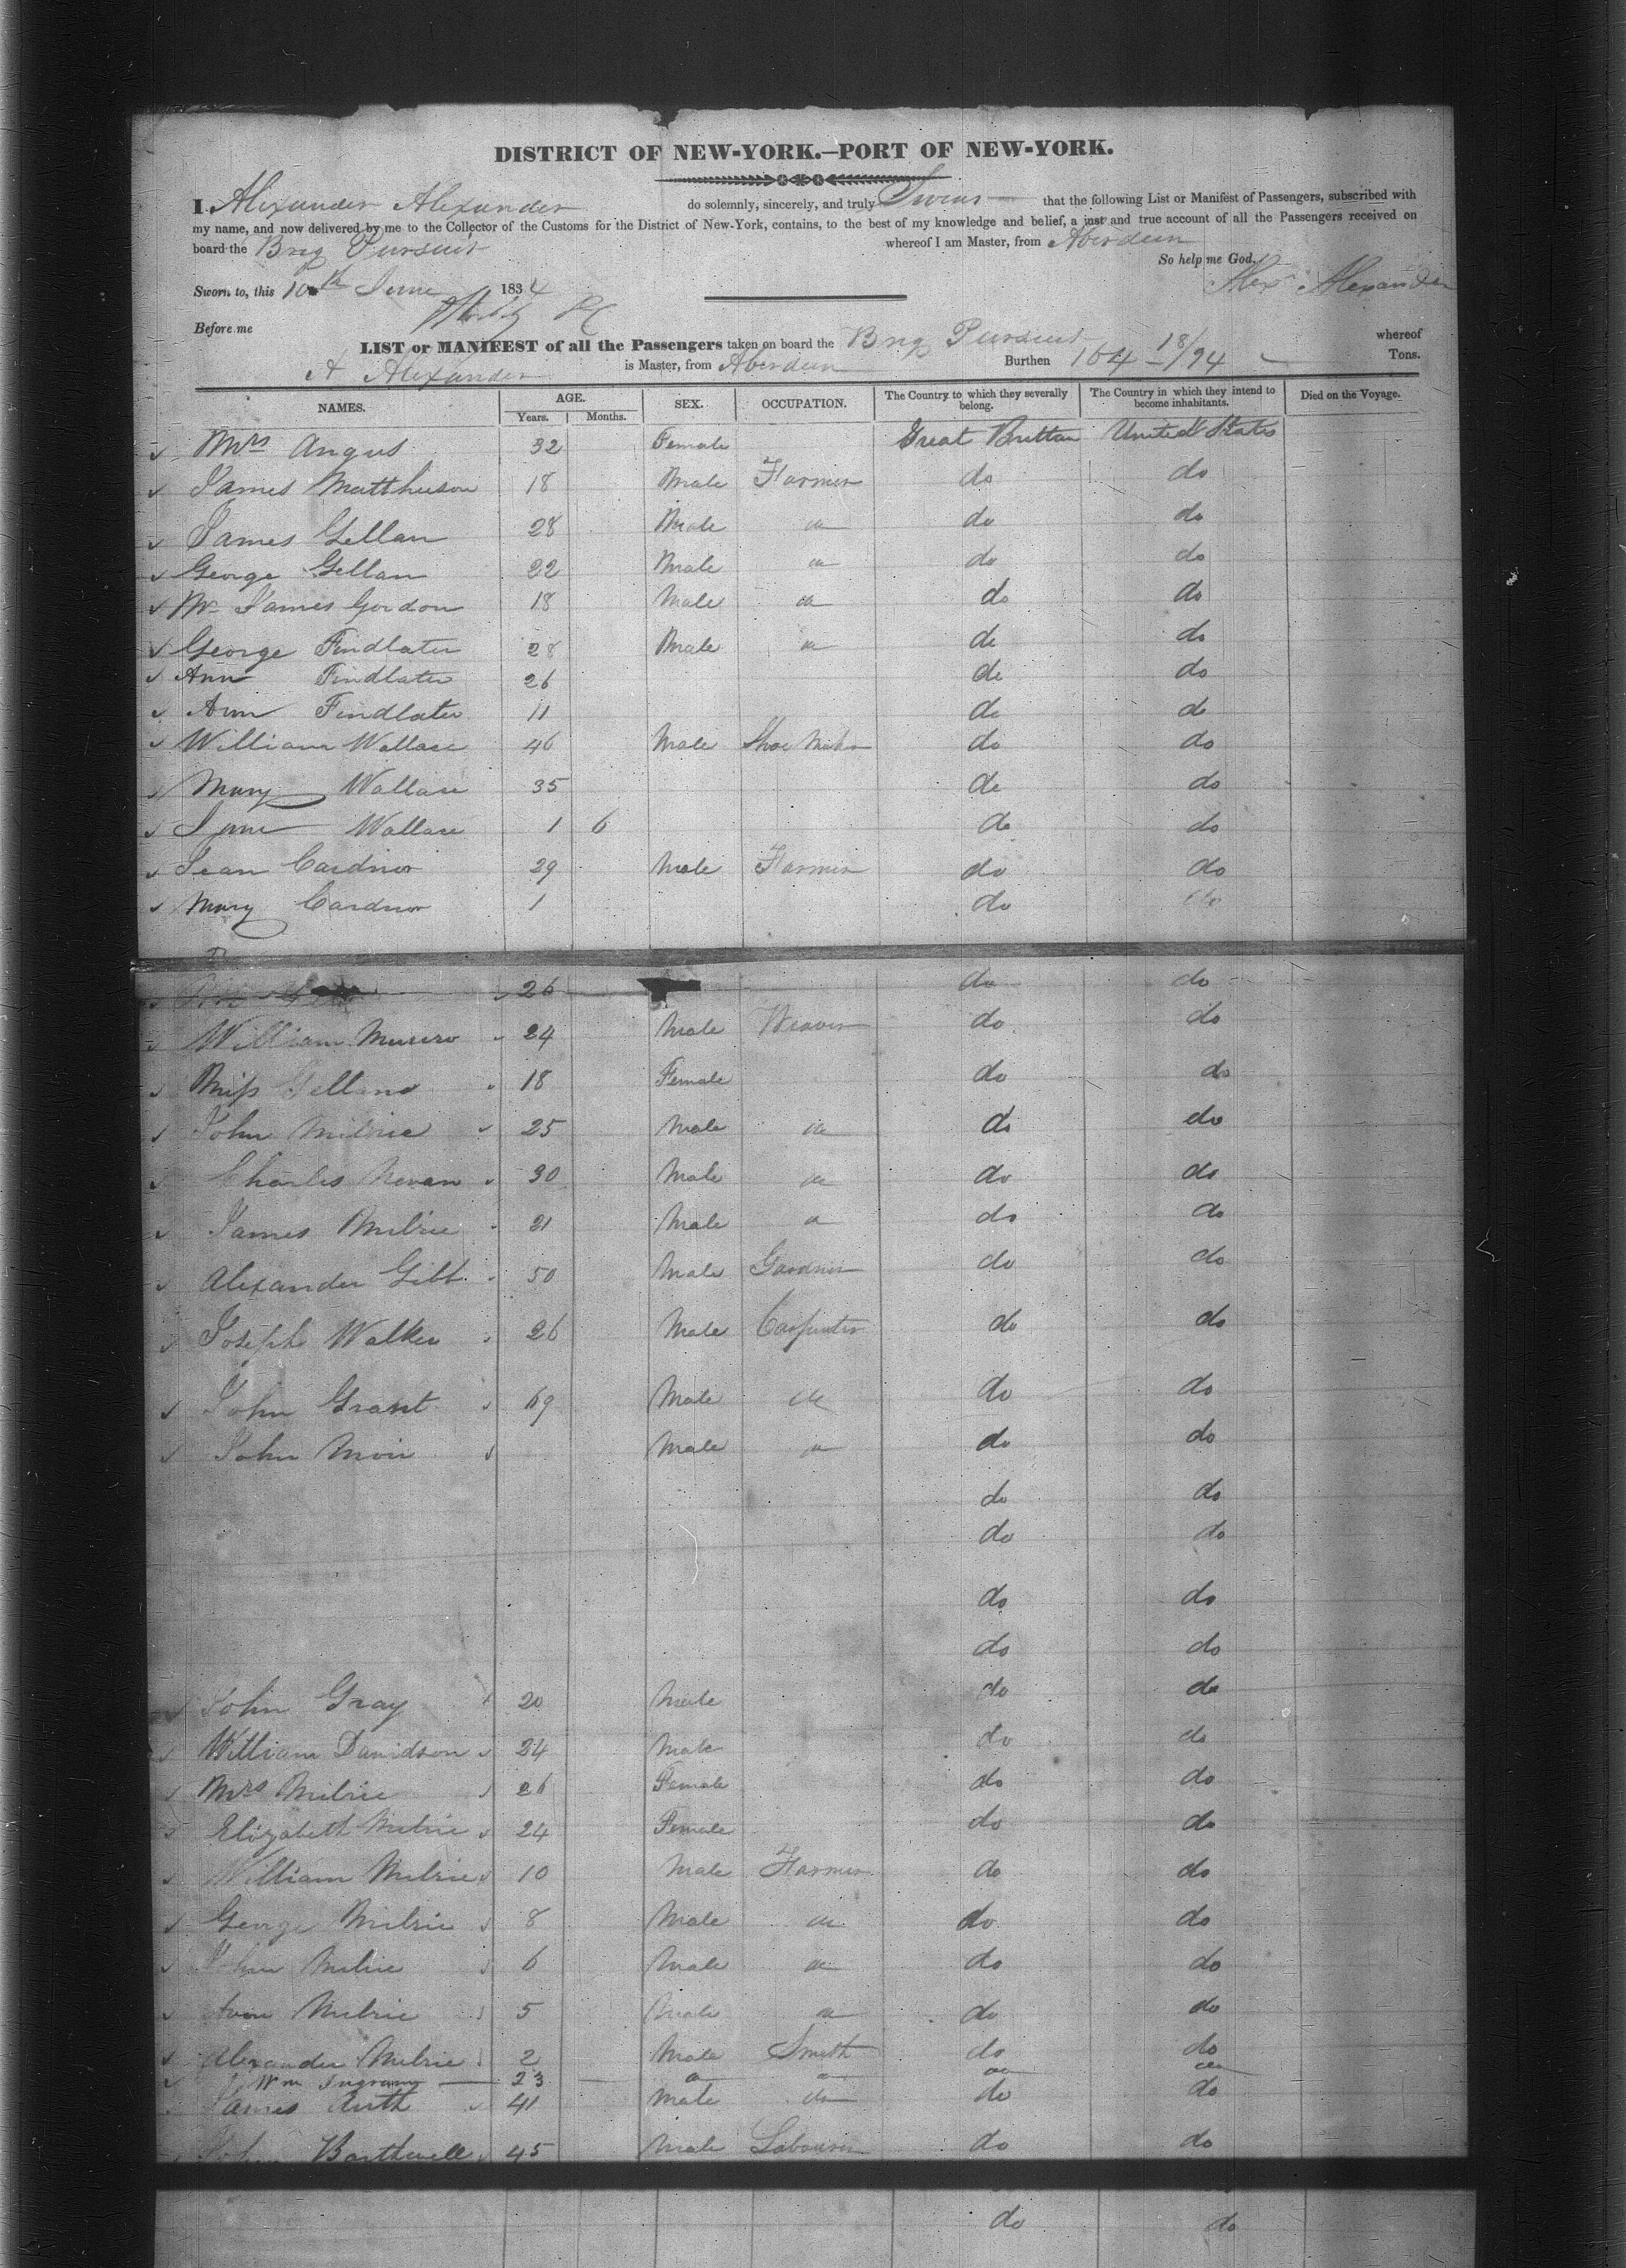 DISTRICT OF NEW-YORK.—PORT OF NEW-YORK.
I Alexander Alexander do solemnly, sincerely, and truly Swear that the following List or Manifest of Passengers, subscribed with
my name, and now delivered by me to the Collector of the Customs for the District of New-York, contains, to the best of my knowledge and belief, a just and true account of all the Passengers received on
board the Brig Pursuit whereof I am Master, from Aberdeen
So help me God.
Sworn to, this 10th June 1834 Alex Alexander
Before me
LIST or MANIFEST of all the Passengers taken on board the Brig Pursuit whereof
A Alexander is Master, from Aberdeen Burthen 164 18/94 Tons.
NAMES. AGE. Years. Months. SEX. OCCUPATION. The Country to which they severally belong. The Country in which they intend to become inhabitants. Died on the Voyage.
Mrs Angus 32 Female Great Brittan United States
James Matthewson 18 Male Farmer do do
James Gellan 28 Male do do
George Gellan 22 Male do do
Mr James Gordon 18 Male do do
George Findlater 28 Male do do
Ann Findlater 26 do do
Ann Findlater 11 do do
William Wallace 46 Male Shoe Maker do do
Mary Wallace 35 do do
Jane Wallace 1 6 do do
Jean Cardnor 29 Male Farmer do do
Mary Cardnor 1 do do
26 do do
William Munro 24 Male Weaver do do
Miss Gelland 18 Female do do
John Milrie 25 Male do do
Charles 30 Male do do
James Milrie 21 Male do do
Alexander Gibb 50 Male Gardner do do
Joseph Walker 26 Male Carpenter do do
John Grant 69 Male do do
John Moir Male do do
do do
do do
do do
do do
John Gray 20 Male do do
William Davidson 24 Male do do
Mrs Milrie 26 Female do do
Elizabeth Milrie 24 Female do do
William Milrie 10 Male Farmer do do
George Milrie 8 Male do do
John Milrie 6 Male do do
Ann Milrie 5 Male do do
Alexander Milrie 2 Male Smith do do
Wm Ingram 23
James Ruth 41 Male do do
John Barthwell 45 Male Labourer do do
do do